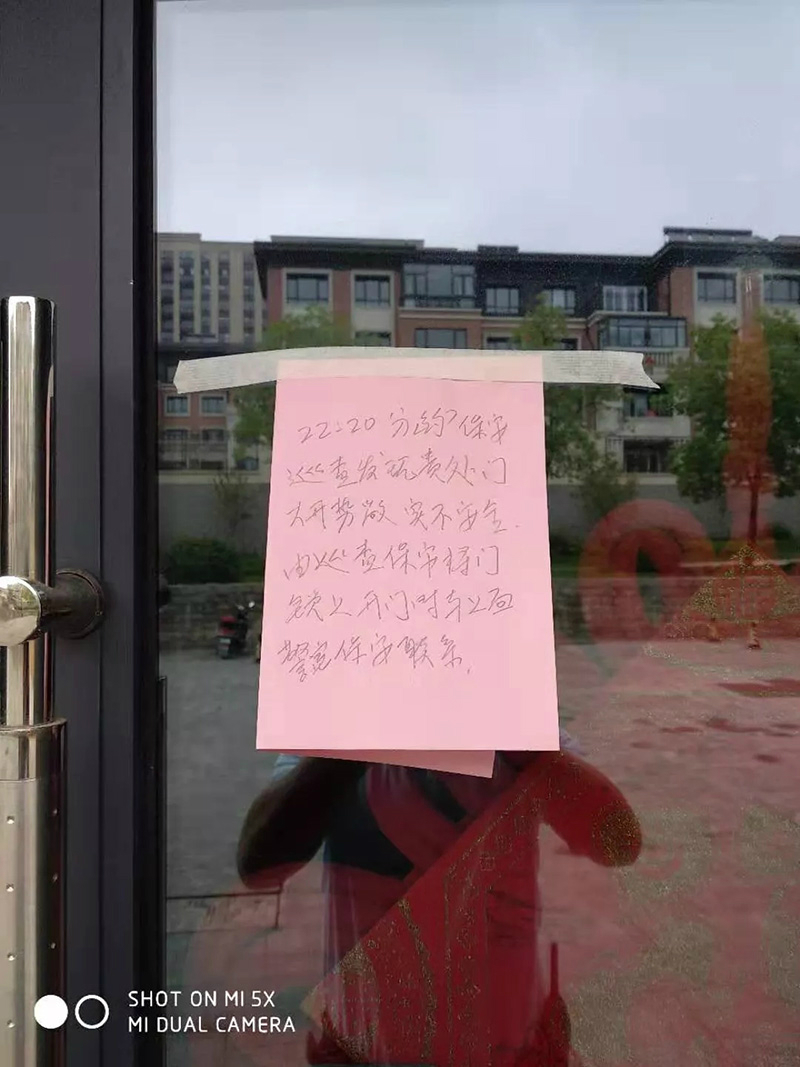 22:20分的保安
巡查发现贵处门
大开 实不安全.
由巡查保安将门
锁上 开门时与
保安联系.
SHOT ON MI 5X
MI DUAL CAMERA